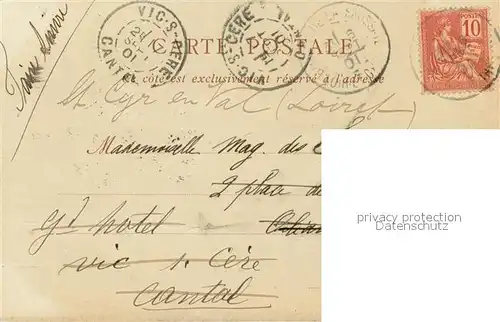 Faire suivre
VIC-S-CERE
CANTAL
VIC-S-CERE
CANTAL
CARTE POSTALE
Ce côté est exclusivement réservé à l'adresse
POSTES
10
St Cyr en Val (Loiret)
Mademoiselle Mag. des
2 place de
Gd hotel
vic s. Cère
Cantal
privacy protection
Datenschutz